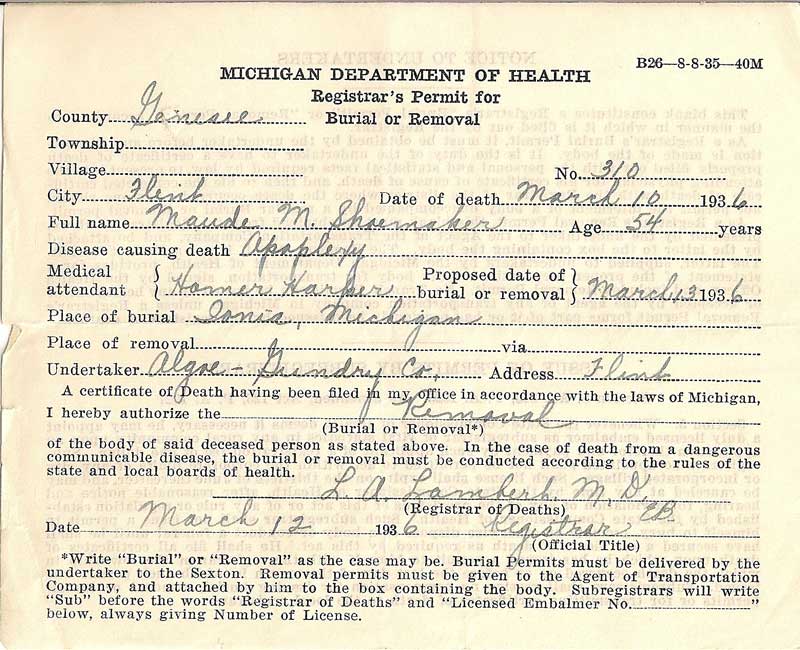 B26—8-8-35—40M
MICHIGAN DEPARTMENT OF HEALTH
Registrar's Permit for
County Genesee Burial or Removal
Township
Village No. 310
City Flint Date of death March 10 1936
Full name Maude M. Shoemaker Age 54 years
Disease causing death Apoplexy
Medical attendant Homer Harper Proposed date of burial or removal March 13 1936
Place of burial Ionia, Michigan
Place of removal via
Undertaker Algoe-Gundry Co. Address Flint
A certificate of Death having been filed in my office in accordance with the laws of Michigan,
I hereby authorize the Removal
(Burial or Removal*)
of the body of said deceased person as stated above. In the case of death from a dangerous
communicable disease, the burial or removal must be conducted according to the rules of the
state and local boards of health.
L. A. M. D.
(Registrar of Deaths)
Date March 12 1936 Registrar EB.
(Official Title)
*Write "Burial" or "Removal" as the case may be. Burial Permits must be delivered by the
undertaker to the Sexton. Removal permits must be given to the Agent of Transportation
Company, and attached by him to the box containing the body. Subregistrars will write
"Sub" before the words "Registrar of Deaths" and "Licensed Embalmer No. "
below, always giving Number of License.